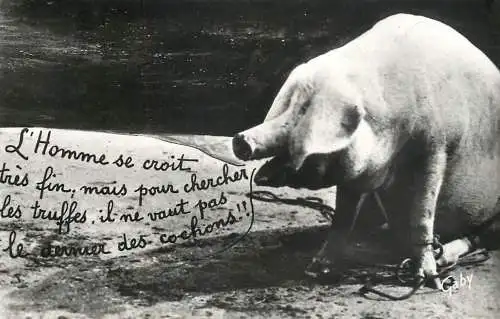 L'Homme se croit
très fin, mais pour chercher
les truffes, il ne vaut pas
le dernier des cochons!!
Gaby